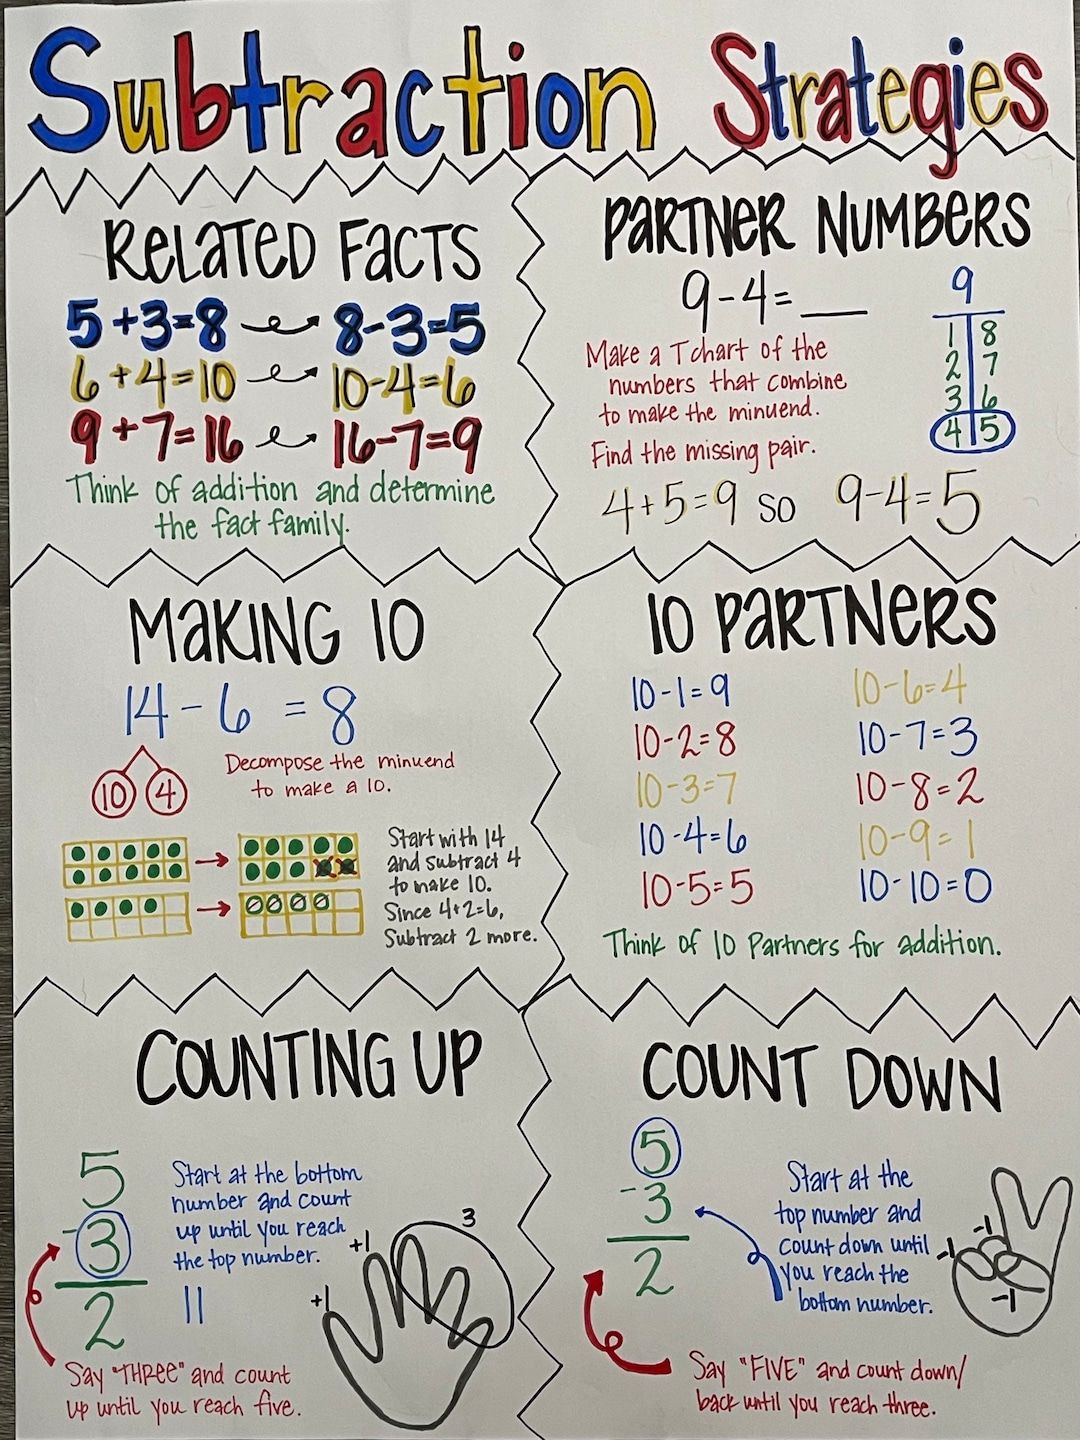 Subtraction Strategies
RELATED FACTS
5+3=8 8-3=5
6+4=10 10-4=6
9+7=16 16-7=9
Think of addition and determine
the fact family.
PARTNER NUMBERS
9-4=___
Make a T chart of the
numbers that combine
to make the minuend.
Find the missing pair.
9
1 8
2 7
3 6
4 5
4+5=9 so 9-4=5
MAKING 10
14-6=8
10 4
Decompose the minuend
to make a 10.
Start with 14
and subtract 4
to make 10.
Since 4+2=6,
Subtract 2 more.
10 PARTNERS
10-1=9
10-2=8
10-3=7
10-4=6
10-5=5
10-6=4
10-7=3
10-8=2
10-9=1
10-10=0
Think of 10 Partners for addition.
COUNTING UP
5
-3
2
Start at the bottom
number and count
up until you reach
the top number.
3
+1
+1
Say "THREE" and count
up until you reach five.
COUNT DOWN
5
-3
2
Start at the
top number and
count down until
you reach the
bottom number.
-1
-1
-1
Say "FIVE" and count down/
back until you reach three.